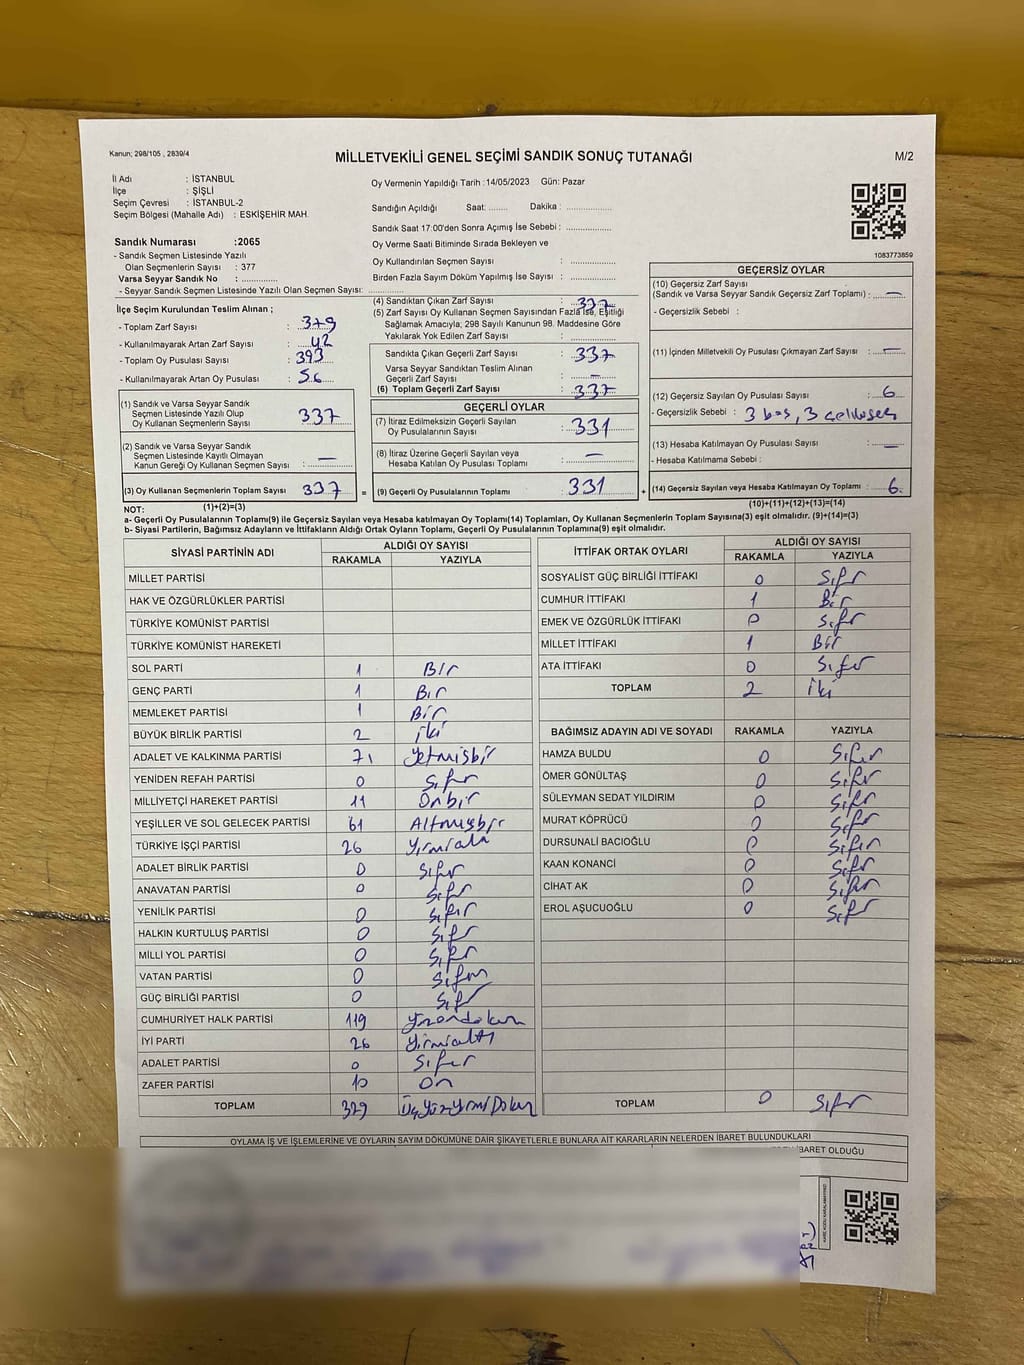 Kanun; 298/105 , 2839/4
MİLLETVEKİLİ GENEL SEÇİMİ SANDIK SONUÇ TUTANAĞI
M/2
İl Adı : İSTANBUL
İlçe : ŞİŞLİ
Seçim Çevresi : İSTANBUL-2
Seçim Bölgesi (Mahalle Adı) : ESKİŞEHİR MAH.
Sandık Numarası :2065
- Sandık Seçmen Listesinde Yazılı
Olan Seçmenlerin Sayısı : 377
Varsa Seyyar Sandık No : ..............
- Seyyar Sandık Seçmen Listesinde Yazılı Olan Seçmen Sayısı: ..............
Oy Vermenin Yapıldığı Tarih :14/05/2023 Gün: Pazar
Sandığın Açıldığı Saat: ....... Dakika : ..............
Sandık Saat 17:00'den Sonra Açımış İse Sebebi : ..............
Oy Verme Saati Bitiminde Sırada Bekleyen ve
Oy Kullandırılan Seçmen Sayısı : ..............
Birden Fazla Sayım Döküm Yapılmış İse Sayısı : ..............
1083773859
İlçe Seçim Kurulundan Teslim Alınan ;
- Toplam Zarf Sayısı : 379
- Kullanılmayarak Artan Zarf Sayısı : 42
- Toplam Oy Pusulası Sayısı : 393
- Kullanılmayarak Artan Oy Pusulası : 56
(1) Sandık ve Varsa Seyyar Sandık
Seçmen Listesinde Yazılı Olup
Oy Kullanan Seçmenlerin Sayısı : 337
(2) Sandık ve Varsa Seyyar Sandık
Seçmen Listesinde Kayıtlı Olmayan
Kanun Gereği Oy Kullanan Seçmen Sayısı : —
(3) Oy Kullanan Seçmenlerin Toplam Sayısı : 337 =
(4) Sandıktan Çıkan Zarf Sayısı : 337
(5) Zarf Sayısı Oy Kullanan Seçmen Sayısından Fazla İse, Eşitliği
Sağlamak Amacıyla; 298 Sayılı Kanunun 98. Maddesine Göre
Yakılarak Yok Edilen Zarf Sayısı : ..............
Sandıkta Çıkan Geçerli Zarf Sayısı : 337
Varsa Seyyar Sandıktan Teslim Alınan
Geçerli Zarf Sayısı : —
(6) Toplam Geçerli Zarf Sayısı : 337
GEÇERLİ OYLAR
(7) İtiraz Edilmeksizin Geçerli Sayılan
Oy Pusulalarının Sayısı : 331
(8) İtiraz Üzerine Geçerli Sayılan veya
Hesaba Katılan Oy Pusulası Toplamı : —
(9) Geçerli Oy Pusulalarının Toplamı : 331 +
GEÇERSİZ OYLAR
(10) Geçersiz Zarf Sayısı
(Sandık ve Varsa Seyyar Sandık Geçersiz Zarf Toplamı) : —
- Geçersizlik Sebebi :
(11) İçinden Milletvekili Oy Pusulası Çıkmayan Zarf Sayısı : —
(12) Geçersiz Sayılan Oy Pusulası Sayısı : 6
- Geçersizlik Sebebi : 3 boş, 3
(13) Hesaba Katılmayan Oy Pusulası Sayısı : —
- Hesaba Katılmama Sebebi :
(14) Geçersiz Sayılan veya Hesaba Katılmayan Oy Toplamı : 6
NOT: (1)+(2)=(3)
(10)+(11)+(12)+(13)=(14)
a- Geçerli Oy Pusulalarının Toplamı(9) ile Geçersiz Sayılan veya Hesaba katılmayan Oy Toplamı(14) Toplamları, Oy Kullanan Seçmenlerin Toplam Sayısına(3) eşit olmalıdır. (9)+(14)=(3)
b- Siyasi Partilerin, Bağımsız Adayların ve İttifakların Aldığı Ortak Oyların Toplamı, Geçerli Oy Pusulalarının Toplamına(9) eşit olmalıdır.
SİYASİ PARTİNİN ADI
ALDIĞI OY SAYISI
RAKAMLA YAZIYLA
MİLLET PARTİSİ
HAK VE ÖZGÜRLÜKLER PARTİSİ
TÜRKİYE KOMÜNİST PARTİSİ
TÜRKİYE KOMÜNİST HAREKETİ
SOL PARTİ 1 Bir
GENÇ PARTİ 1 Bir
MEMLEKET PARTİSİ 1 Bir
BÜYÜK BİRLİK PARTİSİ 2 iki
ADALET VE KALKINMA PARTİSİ 71 yetmişbir
YENİDEN REFAH PARTİSİ 0 Sıfır
MİLLİYETÇİ HAREKET PARTİSİ 11 Onbir
YEŞİLLER VE SOL GELECEK PARTİSİ 61 Altmışbir
TÜRKİYE İŞÇİ PARTİSİ 26 Yirmialtı
ADALET BİRLİK PARTİSİ 0 Sıfır
ANAVATAN PARTİSİ 0 Sıfır
YENİLİK PARTİSİ 0 Sıfır
HALKIN KURTULUŞ PARTİSİ 0 Sıfır
MİLLİ YOL PARTİSİ 0 Sıfır
VATAN PARTİSİ 0 Sıfır
GÜÇ BİRLİĞİ PARTİSİ 0 Sıfır
CUMHURİYET HALK PARTİSİ 119 yüzondokuz
İYİ PARTİ 26 Yirmialtı
ADALET PARTİSİ 0 Sıfır
ZAFER PARTİSİ 10 On
TOPLAM 329 ÜçyüzyirmiDokuz
İTTİFAK ORTAK OYLARI
ALDIĞI OY SAYISI
RAKAMLA YAZIYLA
SOSYALİST GÜÇ BİRLİĞİ İTTİFAKI 0 Sıfır
CUMHUR İTTİFAKI 1 Bir
EMEK VE ÖZGÜRLÜK İTTİFAKI 0 Sıfır
MİLLET İTTİFAKI 1 Bir
ATA İTTİFAKI 0 Sıfır
TOPLAM 2 İki
BAĞIMSIZ ADAYIN ADI VE SOYADI RAKAMLA YAZIYLA
HAMZA BULDU 0 Sıfır
ÖMER GÖNÜLTAŞ 0 Sıfır
SÜLEYMAN SEDAT YILDIRIM 0 Sıfır
MURAT KÖPRÜCÜ 0 Sıfır
DURSUNALİ BACIOĞLU 0 Sıfır
KAAN KONANCİ 0 Sıfır
CİHAT AK 0 Sıfır
EROL AŞUCUOĞLU 0 Sıfır
TOPLAM 0 Sıfır
OYLAMA İŞ VE İŞLEMLERİNE VE OYLARIN SAYIM DÖKÜMÜNE DAİR ŞİKAYETLERLE BUNLARA AİT KARARLARIN NELERDEN İBARET BULUNDUKLARI
İBARET OLDUĞU